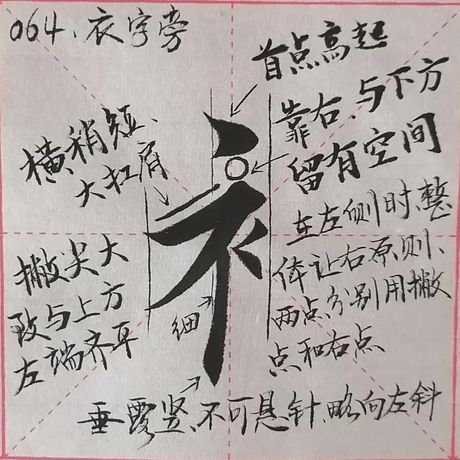 064、衣字旁
首点高起
靠右、与下方
留有空间
横、稍短、
大扛肩
衤
在左侧时、整
体让右原则、
两点分别用撇
点和右点
撇尖大
致与上方
左端齐平
细
垂露竖、不可悬针、略向左斜